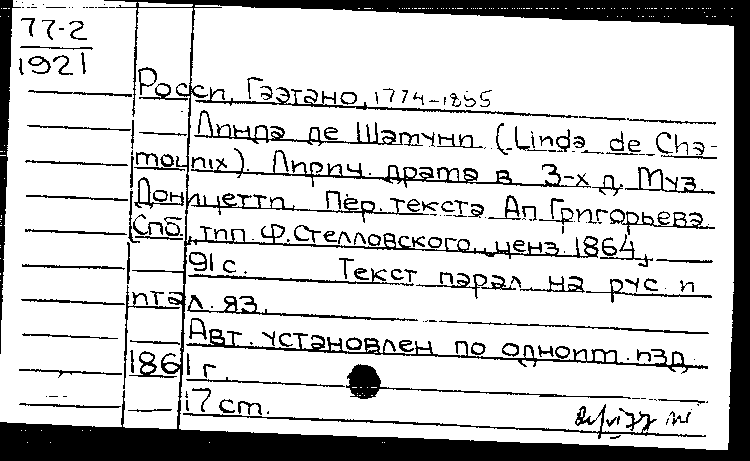 77-2
1921
Росси, Гаэтано, 1774-1855
Линда де Шамуни (Linda de Cha-
mounix). Лирич. драма в 3-х д. Муз.
Доницетти. Пер. текста Ап. Григорьева.
Спб., тип. Ф. Стелловского, ценз. 1864,
91 с. Текст парал. на рус. и
итал. яз.
Авт. установлен по одноим. изд.
1861 г.
17 cm.